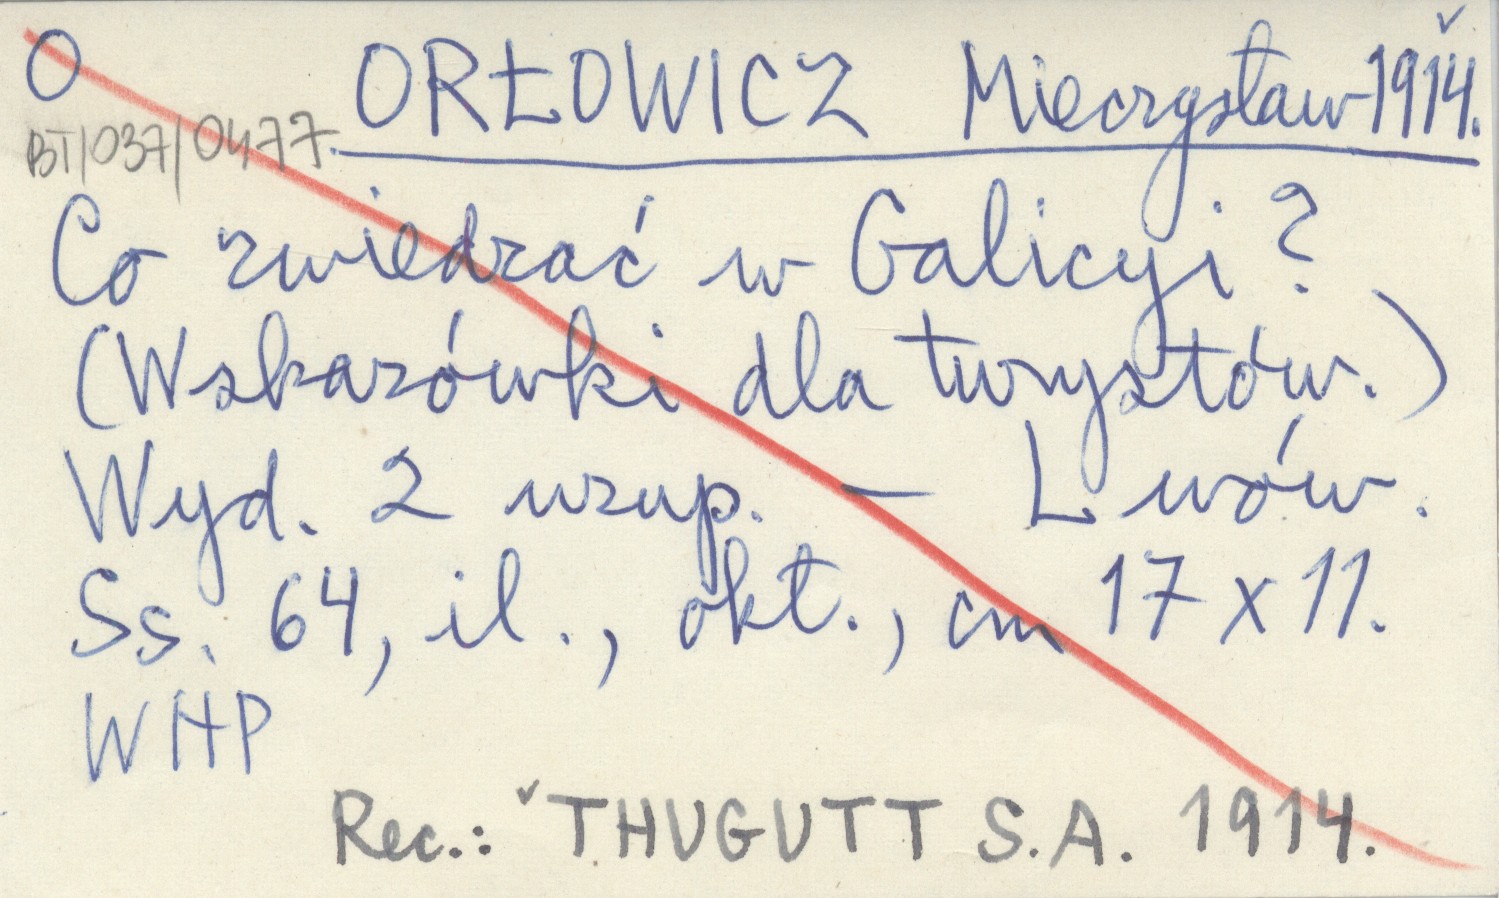 O ORŁOWICZ Mieczysław 1914.
BT/037/0477.
Co zwiedzać w Galicyi?
(Wskazówki dla turystów.)
Wyd. 2 uzup. — Lwów.
Ss. 64, il., okł., cm 17 x 11.
WHP
Rec.: ˇTHUGUTT S.A. 1914.